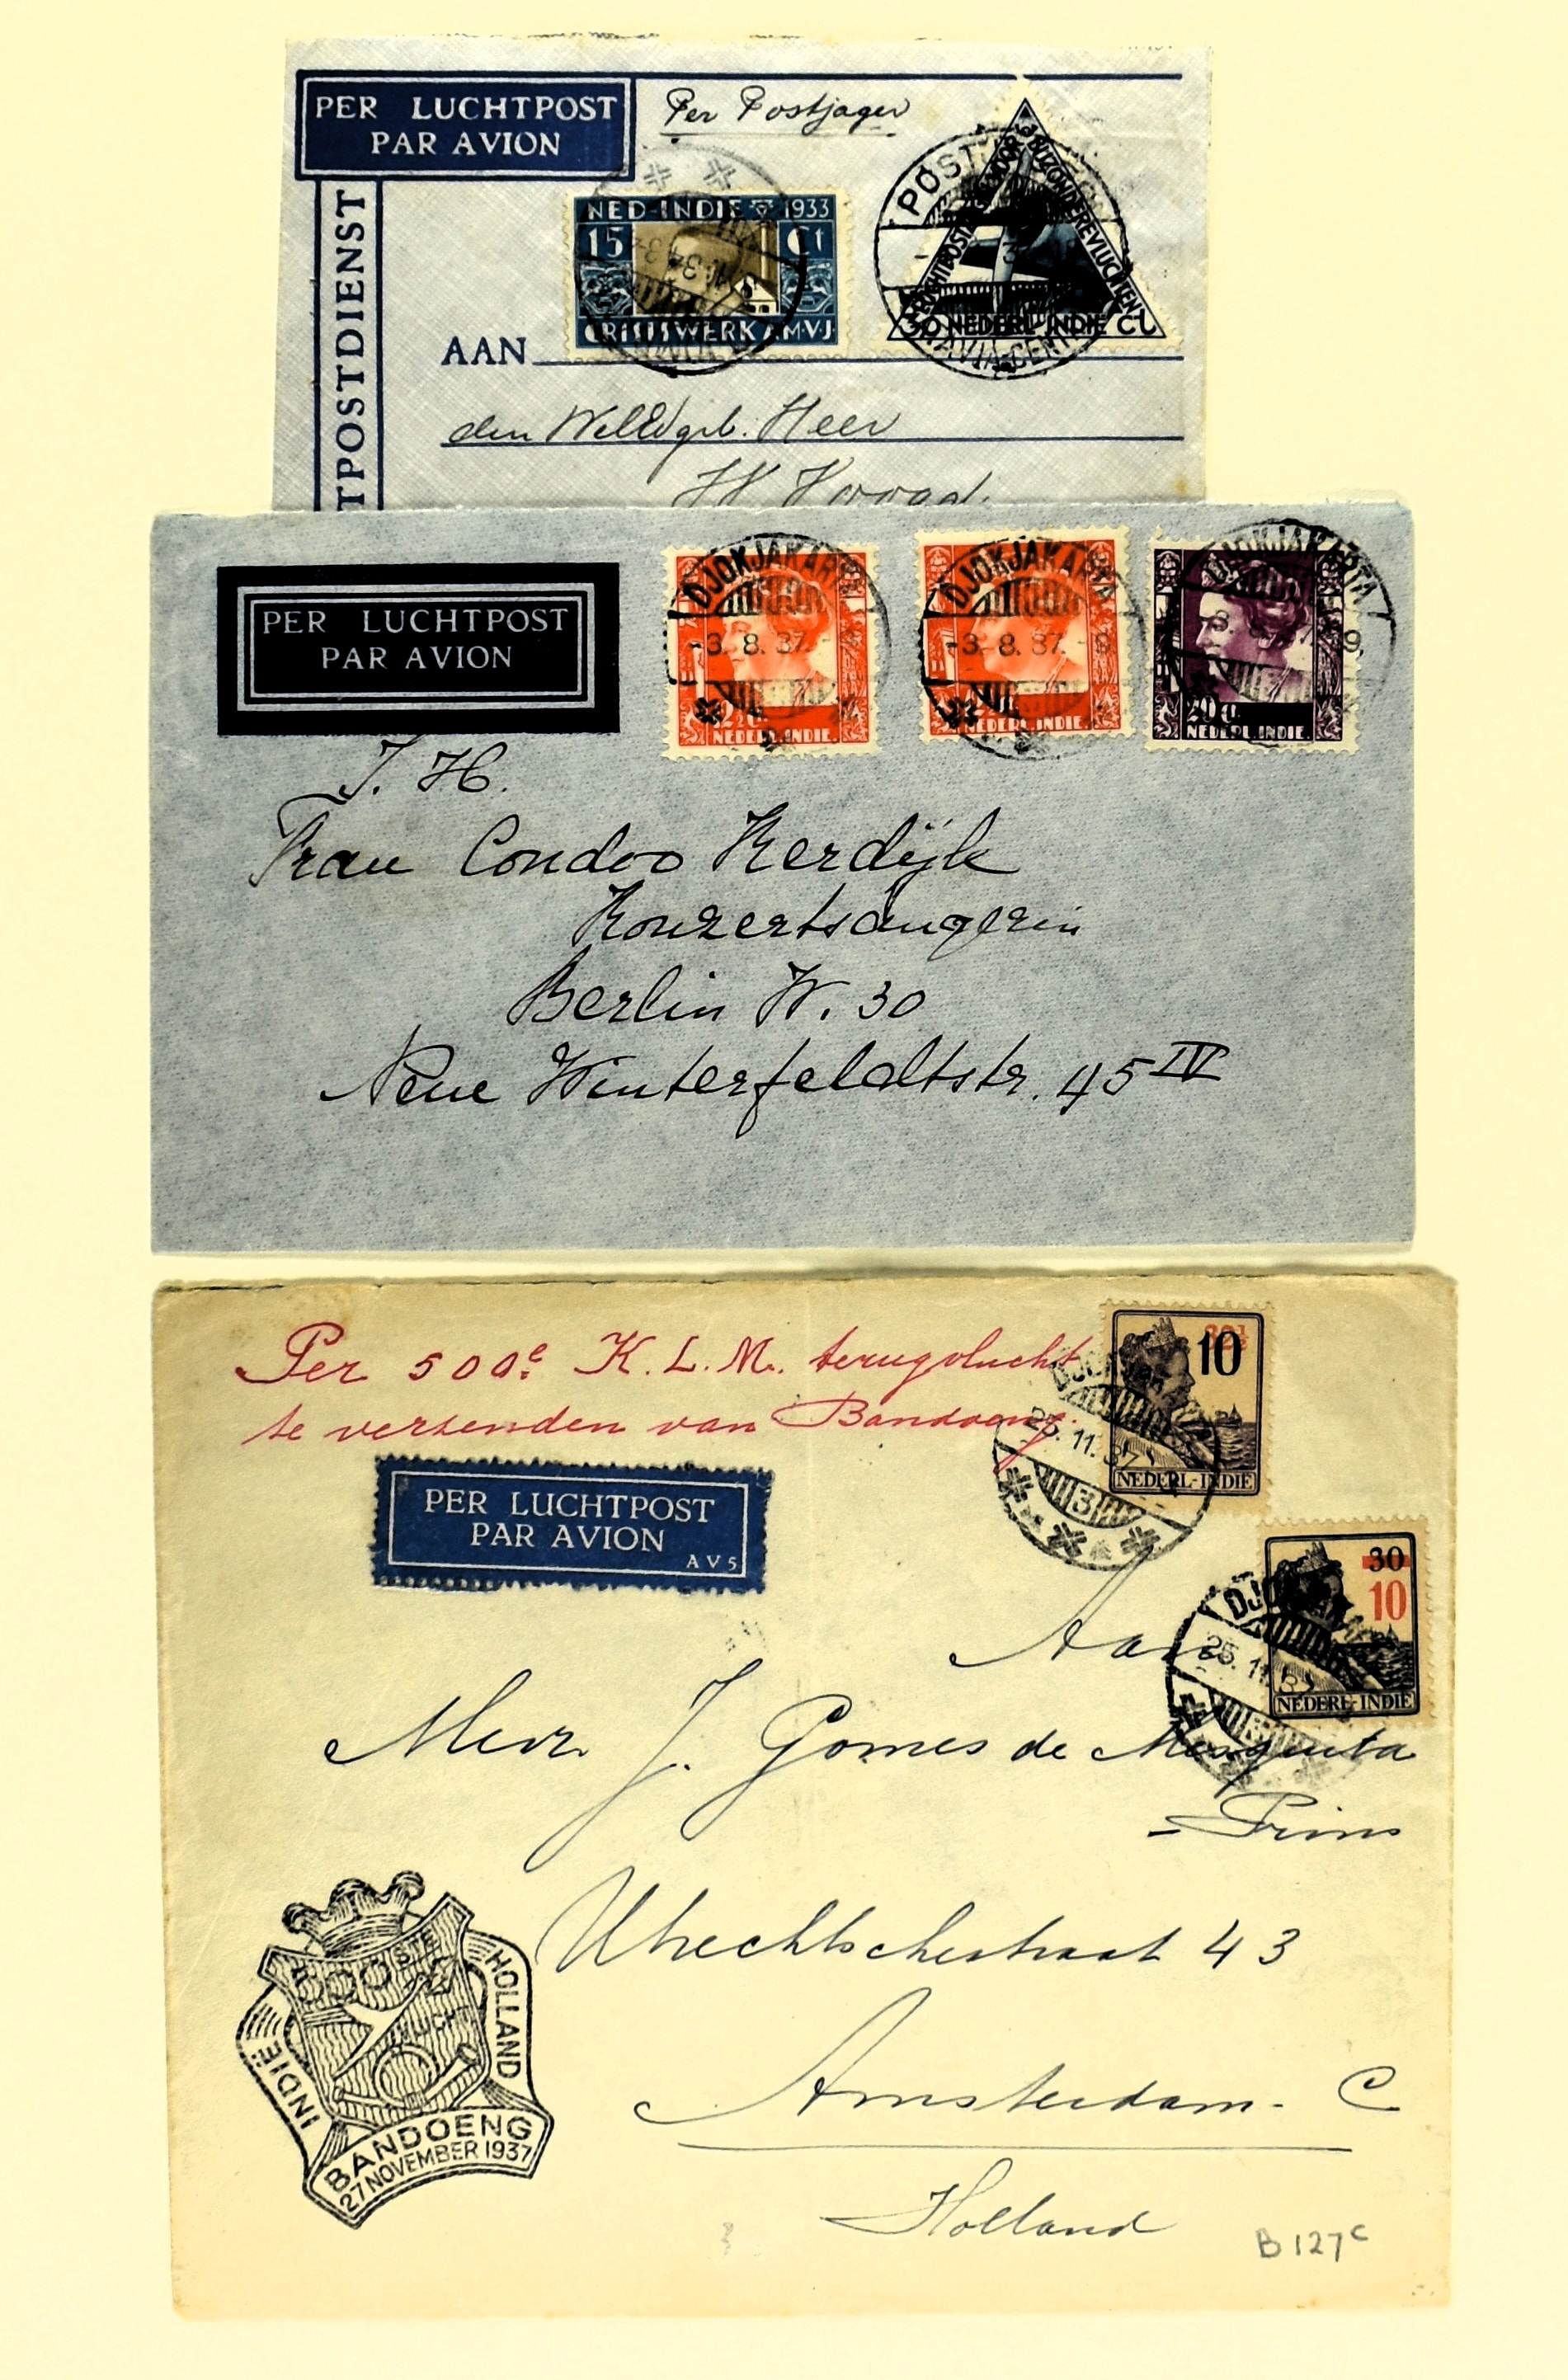 PER LUCHTPOST
PAR AVION
Per Postjager
TPOSTDIENST
NED-INDIE 1933
15 Ct
CRISISWERK A.M.V.J.
POST
30 NEDERL. INDIE CT.
BATAVIA-CENTRUM
AAN
den WelEdgeb. Heer
PER LUCHTPOST
PAR AVION
DJOKJAKARTA
-3. 8. 37.-9
12½ c
NEDERL. INDIE.
DJOKJAKARTA
-3. 8. 37.-9
NEDERL. INDIE.
DJOKJAKARTA
20 c
NEDERL. INDIE.
I. H.
Frau Condoo Kerdijk
Konzertsängerin
Berlin W. 30
Neue Winterfeldtstr. 45 IV
Per 500e K.L.M. terugvlucht
te verzenden van Bandoeng.
PER LUCHTPOST
PAR AVION
AV5
10
NEDERL-INDIE
25.11.37
3
30
10
NEDERL-INDIE
Aan
Mevr. J. Gomes de Mesquita
=Prins
Utrechtschestraat 43
Amsterdam. C
Holland
500STE
INDIË
HOLLAND
BANDOENG
27 NOVEMBER 1937
B127c